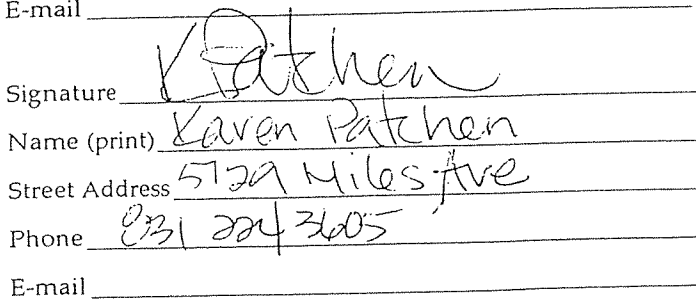 E-mail
Signature KPatchen
Name (print) Karen Patchen
Street Address 5729 Miles Ave
Phone 831 224 3605
E-mail